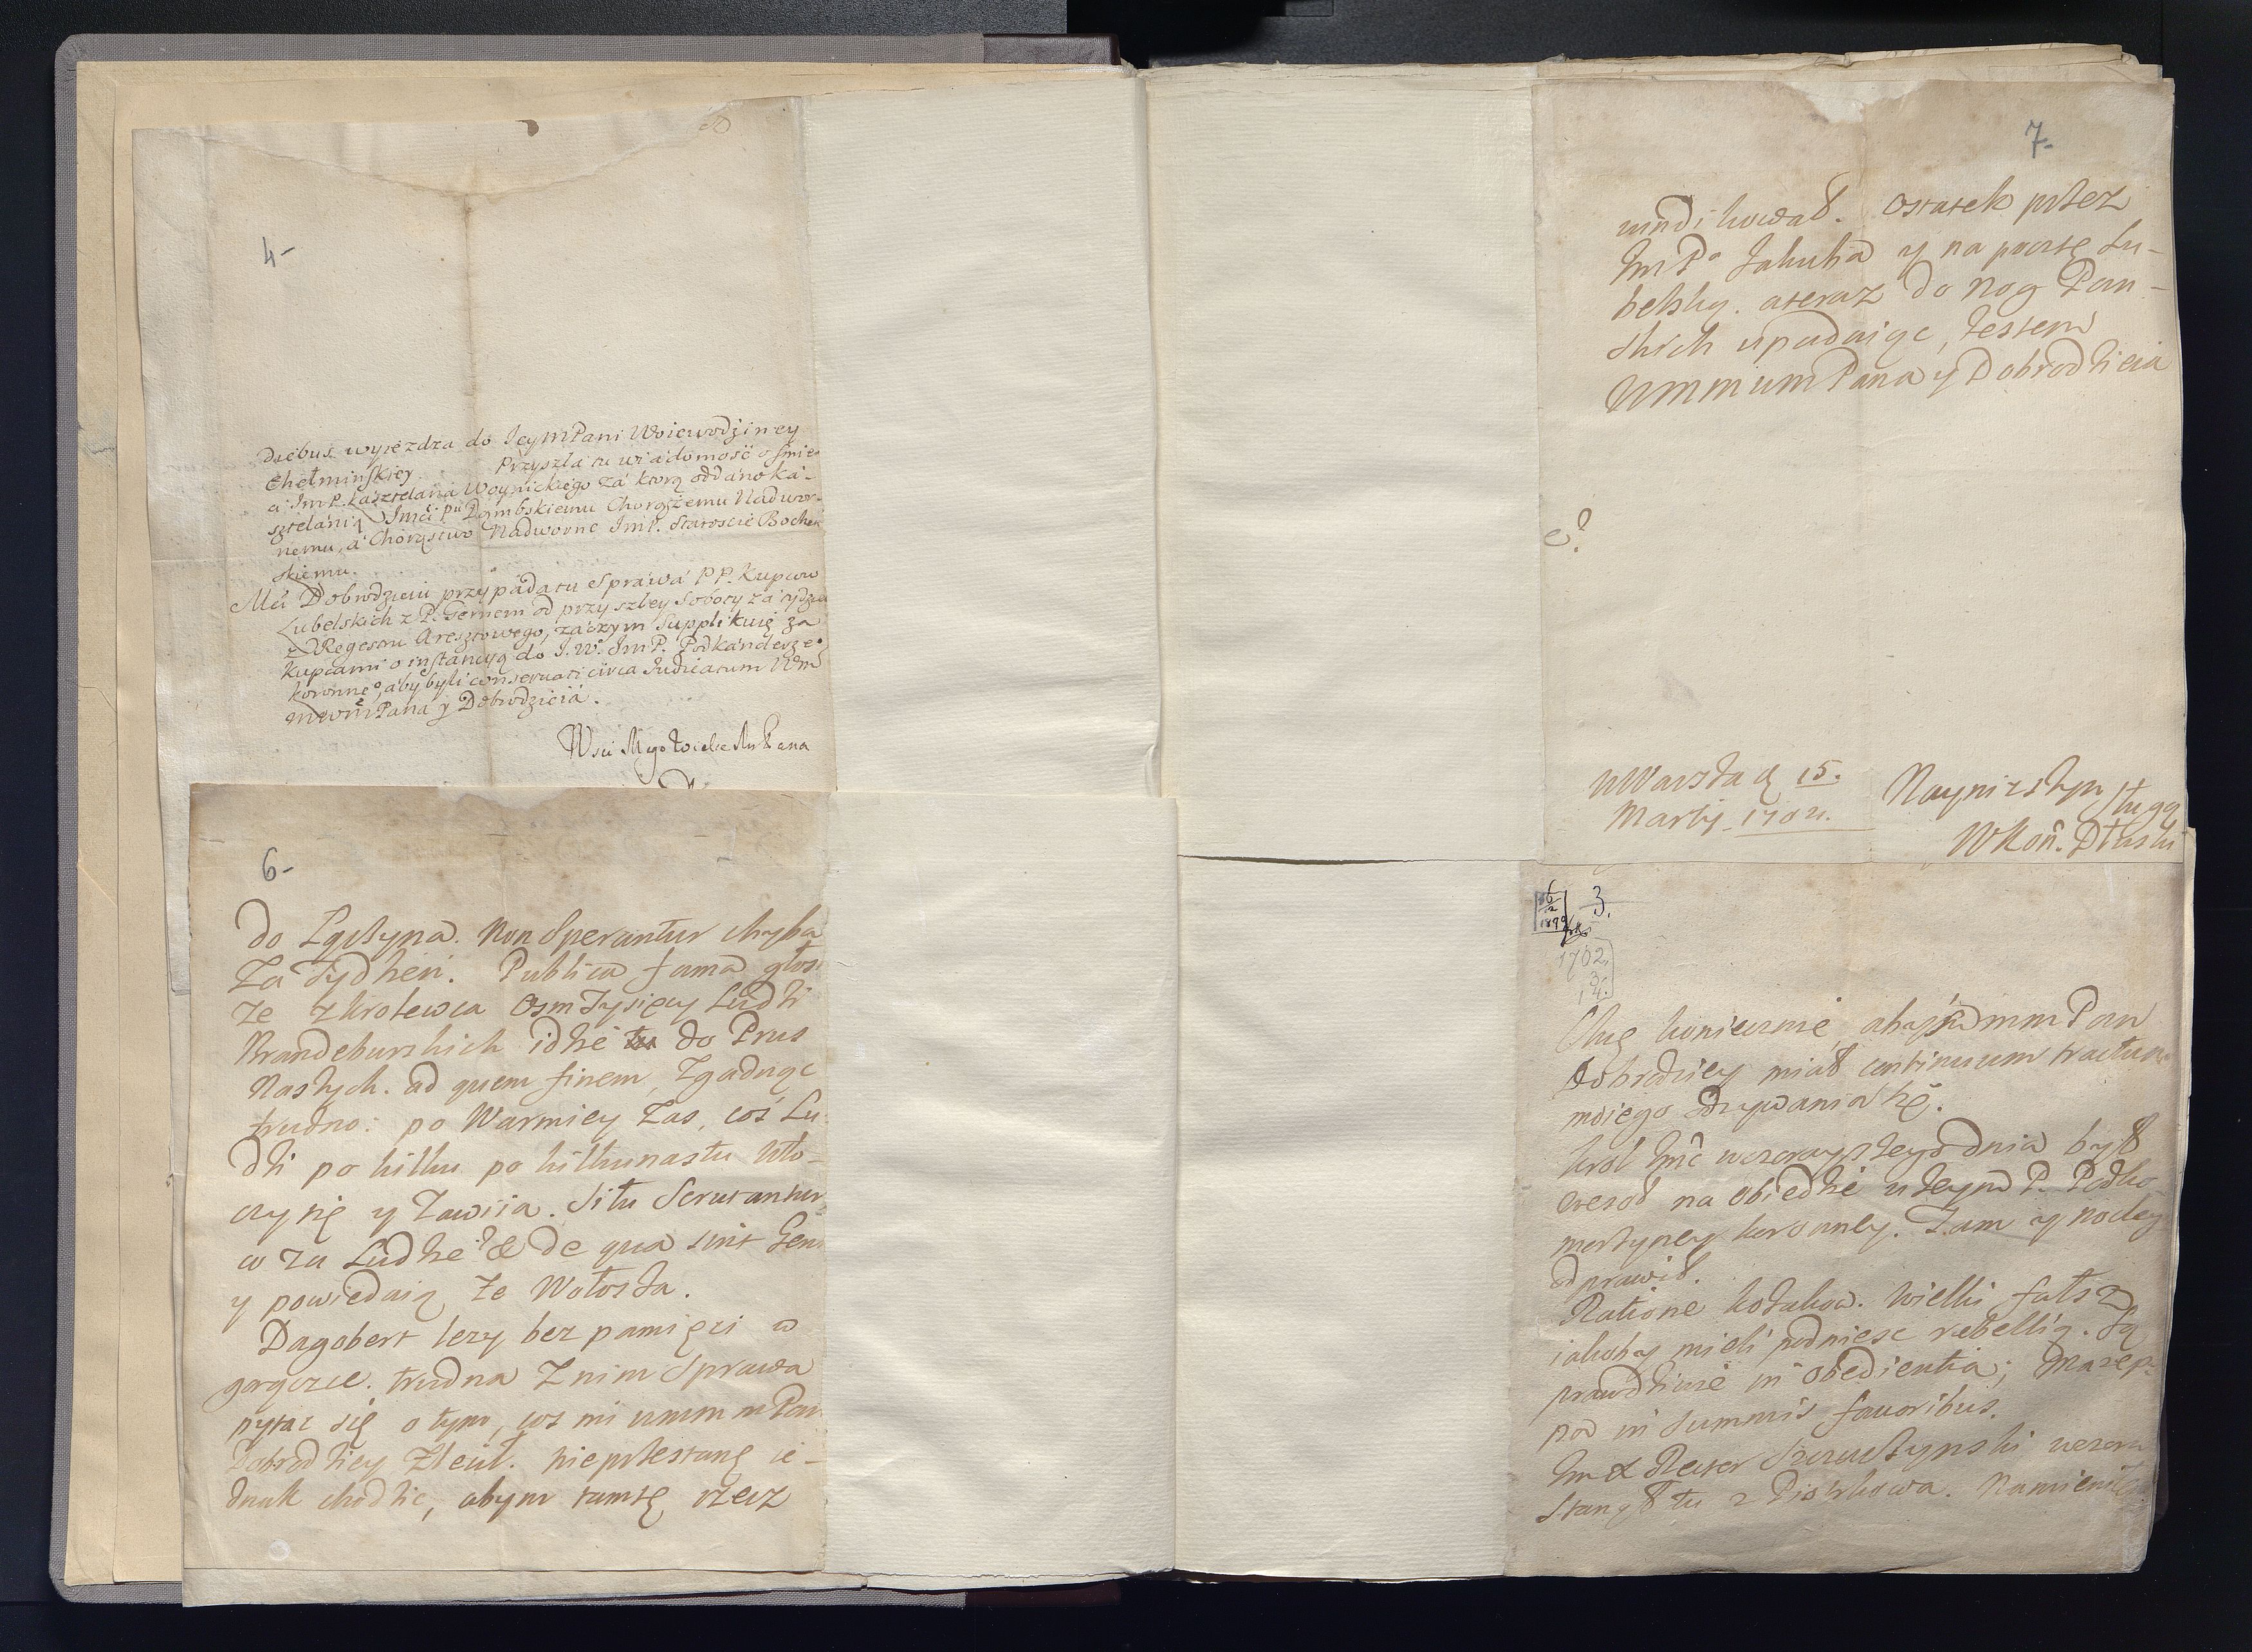 4-
diebus wyiezdza do JeymPani Woiewodziney
Chełminskiey. Przyszła tu wiadomość o śmier
ci ImP. Kasztelana Woynickiego zá ktorą oddano ká-
sztelánią Imći pu Dąmbskiemu Chorążemu Nadwor-
nemu, á Chorąstwo Nadworne ImP. Staroscie Bocheń
skiemu.
Mći Dobrodzieiu przypáda tu Spráwá PP. Kupcow
Lubelskich z P. Gernem od przyszley Soboty zá tydzień
z Regestru Aresztowego, záczym Supplikuię za
Kupcami o instancyą do J.W. ImP. Podkánclerze°
koronne°, aby byli conservati circa Judicatum Wm
mwmPana y Dobrodzieiá.
Wsci Mego Wielce Mſ Pana
6-
do Lgstyna. Non Sperantur chyba
Za Tydzień. Publica fama głosi
ze z Krolewca Osm Tysięcy Ludzi
Brandeburskich idzie tu do Prus
Naszych. ad quem finem, Zgadnąc
trudno: po Warmiey Zas, coś Lu
dzi po kilku po kilkunastu Wło-
czy się y Zawiia. Siłu Scrutantur
co za Ludzie? & de qua sint Gen
y powiedaią ze Wołosza.
Dagobert lezy bez pamięci w
gorączce. trudna Z nim Sprawa
pytac się o tym, cos mi wmm mPan
Dobrodziey Zlecił. nieprzestanę ie-
dnak chodzic, abym tamtę rzecz
7-
windikował. Ostatek przez
Im P° Jakuba y na pocztę Lu-
belską. a teraz do nog Pan-
skich upadaiąc, Jestem
WmmwmPana y Dobrodzieia
e?
w Warsza dą 15.
Martij 1702.
Nayniższym sługą
WKoñ. Dłuski
16
12
1899
3.
1702.
3.
14.
Chcę koniecznie, abyś Wmm Pan
Dobrodziey miał continuum tractum
moiego odzywania Się.
Krol Imć wczorayszego dnia był
wesoł na Obiedzie u Jeym P. Podko-
morzyney koronney. Tam y nocleg
odprawił.
Ratione Kozakow. Wielki fałsz
iakoby mieli podniesc rebellią. Są
prawdziwie in Obedientia; Mazep-
pa in Summis favoribus.
Im X Rector Szczuczynski wczora
Stanął tu z Piotrkowa. Namienił